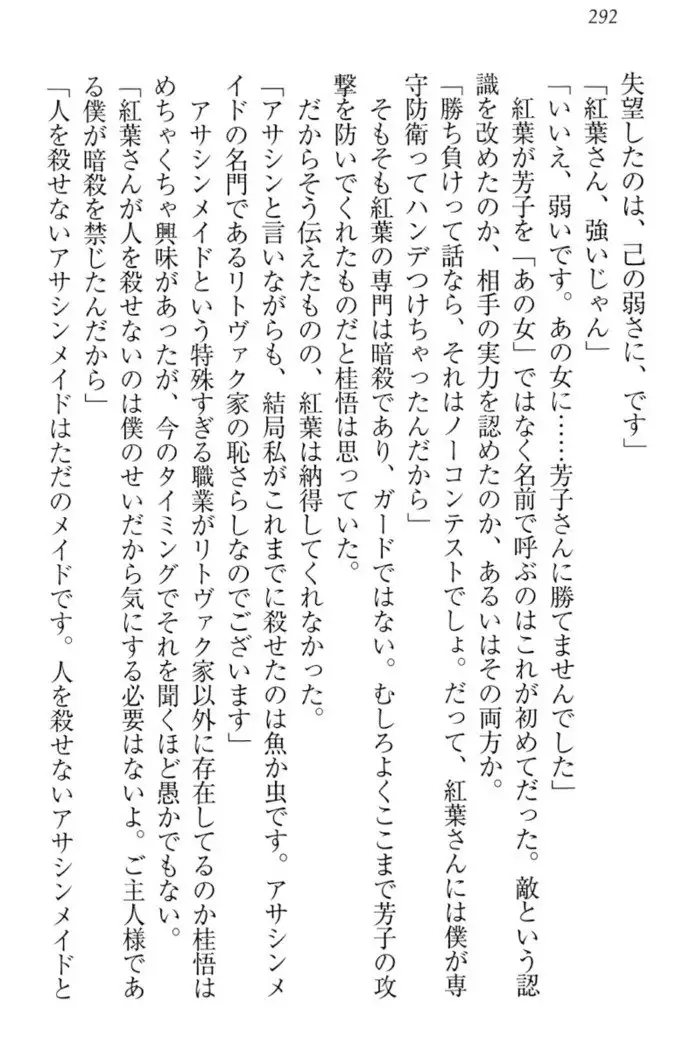 292
失望したのは、己の弱さに、です」
「紅葉さん、強いじゃん」
「いいえ、弱いです。あの女に……芳子さんに勝てませんでした」
　紅葉が芳子を「あの女」ではなく名前で呼ぶのはこれが初めてだった。敵という認
識を改めたのか、相手の実力を認めたのか、あるいはその両方か。
「勝ち負けって話なら、それはノーコンテストでしょ。だって、紅葉さんには僕が専
守防衛ってハンデつけちゃったんだから」
　そもそも紅葉の専門は暗殺であり、ガードではない。むしろよくここまで芳子の攻
撃を防いでくれたものだと桂悟は思っていた。
　だからそう伝えたものの、紅葉は納得してくれなかった。
「アサシンと言いながらも、結局私がこれまでに殺せたのは魚か虫です。アサシンメ
イドの名門であるリトヴァク家の恥さらしなのでございます」
　アサシンメイドという特殊すぎる職業がリトヴァク家以外に存在してるのか桂悟は
めちゃくちゃ興味があったが、今のタイミングでそれを聞くほど愚かでもない。
「紅葉さんが人を殺せないのは僕のせいだから気にする必要はないよ。ご主人様であ
る僕が暗殺を禁じたんだから」
「人を殺せないアサシンメイドはただのメイドです。人を殺せないアサシンメイドと